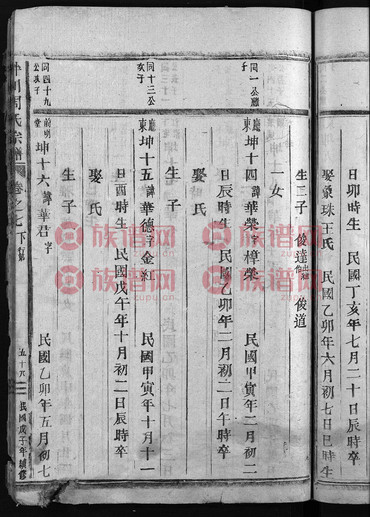 日卯時生　民國丁亥年七月二十日辰時卒
娶象珠王氏　民國乙卯年六月初七日巳時生
生二子　俊達　俊道
一女
同一公
子
坤十四諱華榮字樟榮　民國甲寅年二月初二
日辰時生　民國乙卯年二月初二日午時卒
娶氏
生子
同十三公
次子
坤十五諱華德字金　民國甲寅年十月十一
日酉時生　民國戊午年十月初二日辰時卒
娶氏
生子
同四十九
公長子
坤十六諱華君字　民國乙卯年五月初七
周氏宗譜
卷之七下
行第
五十九
民國戊子年續修
族谱网
zupu.cn